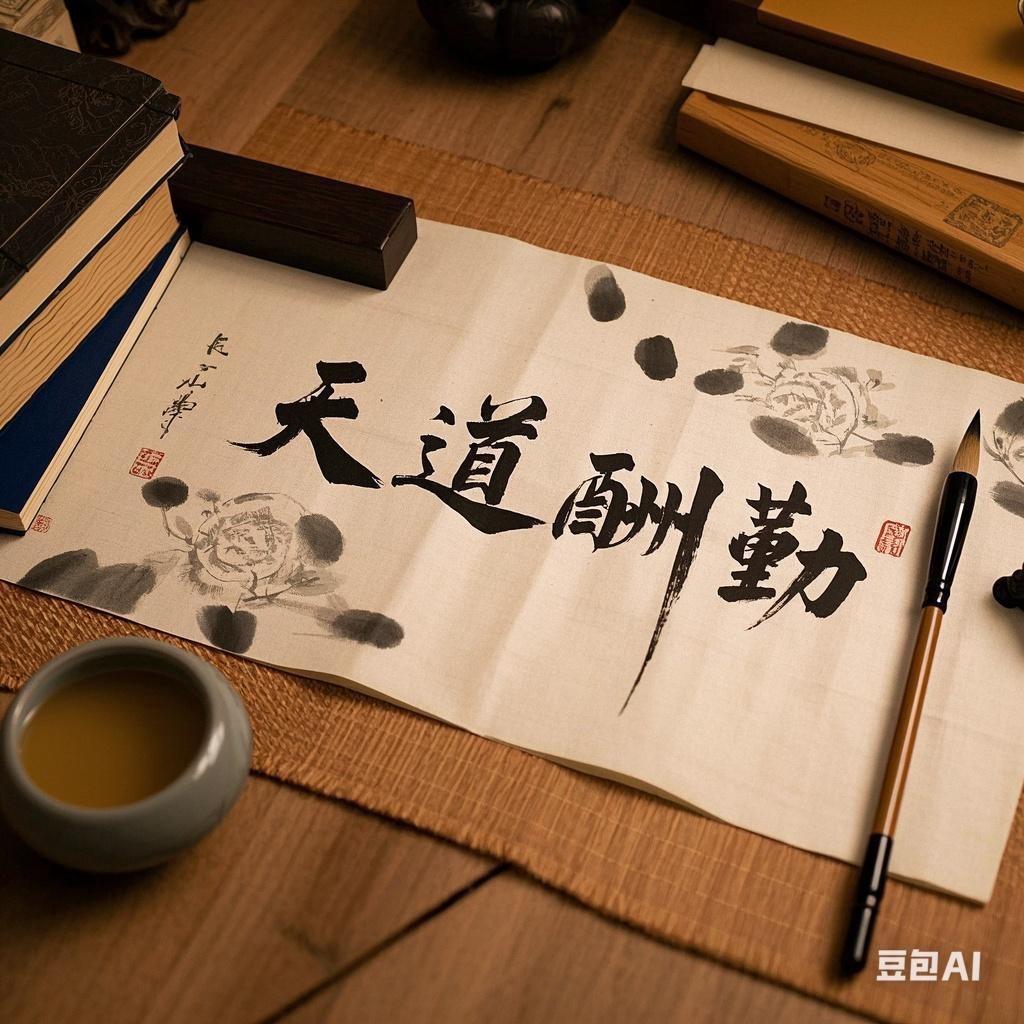 天道酬勤
豆包AI